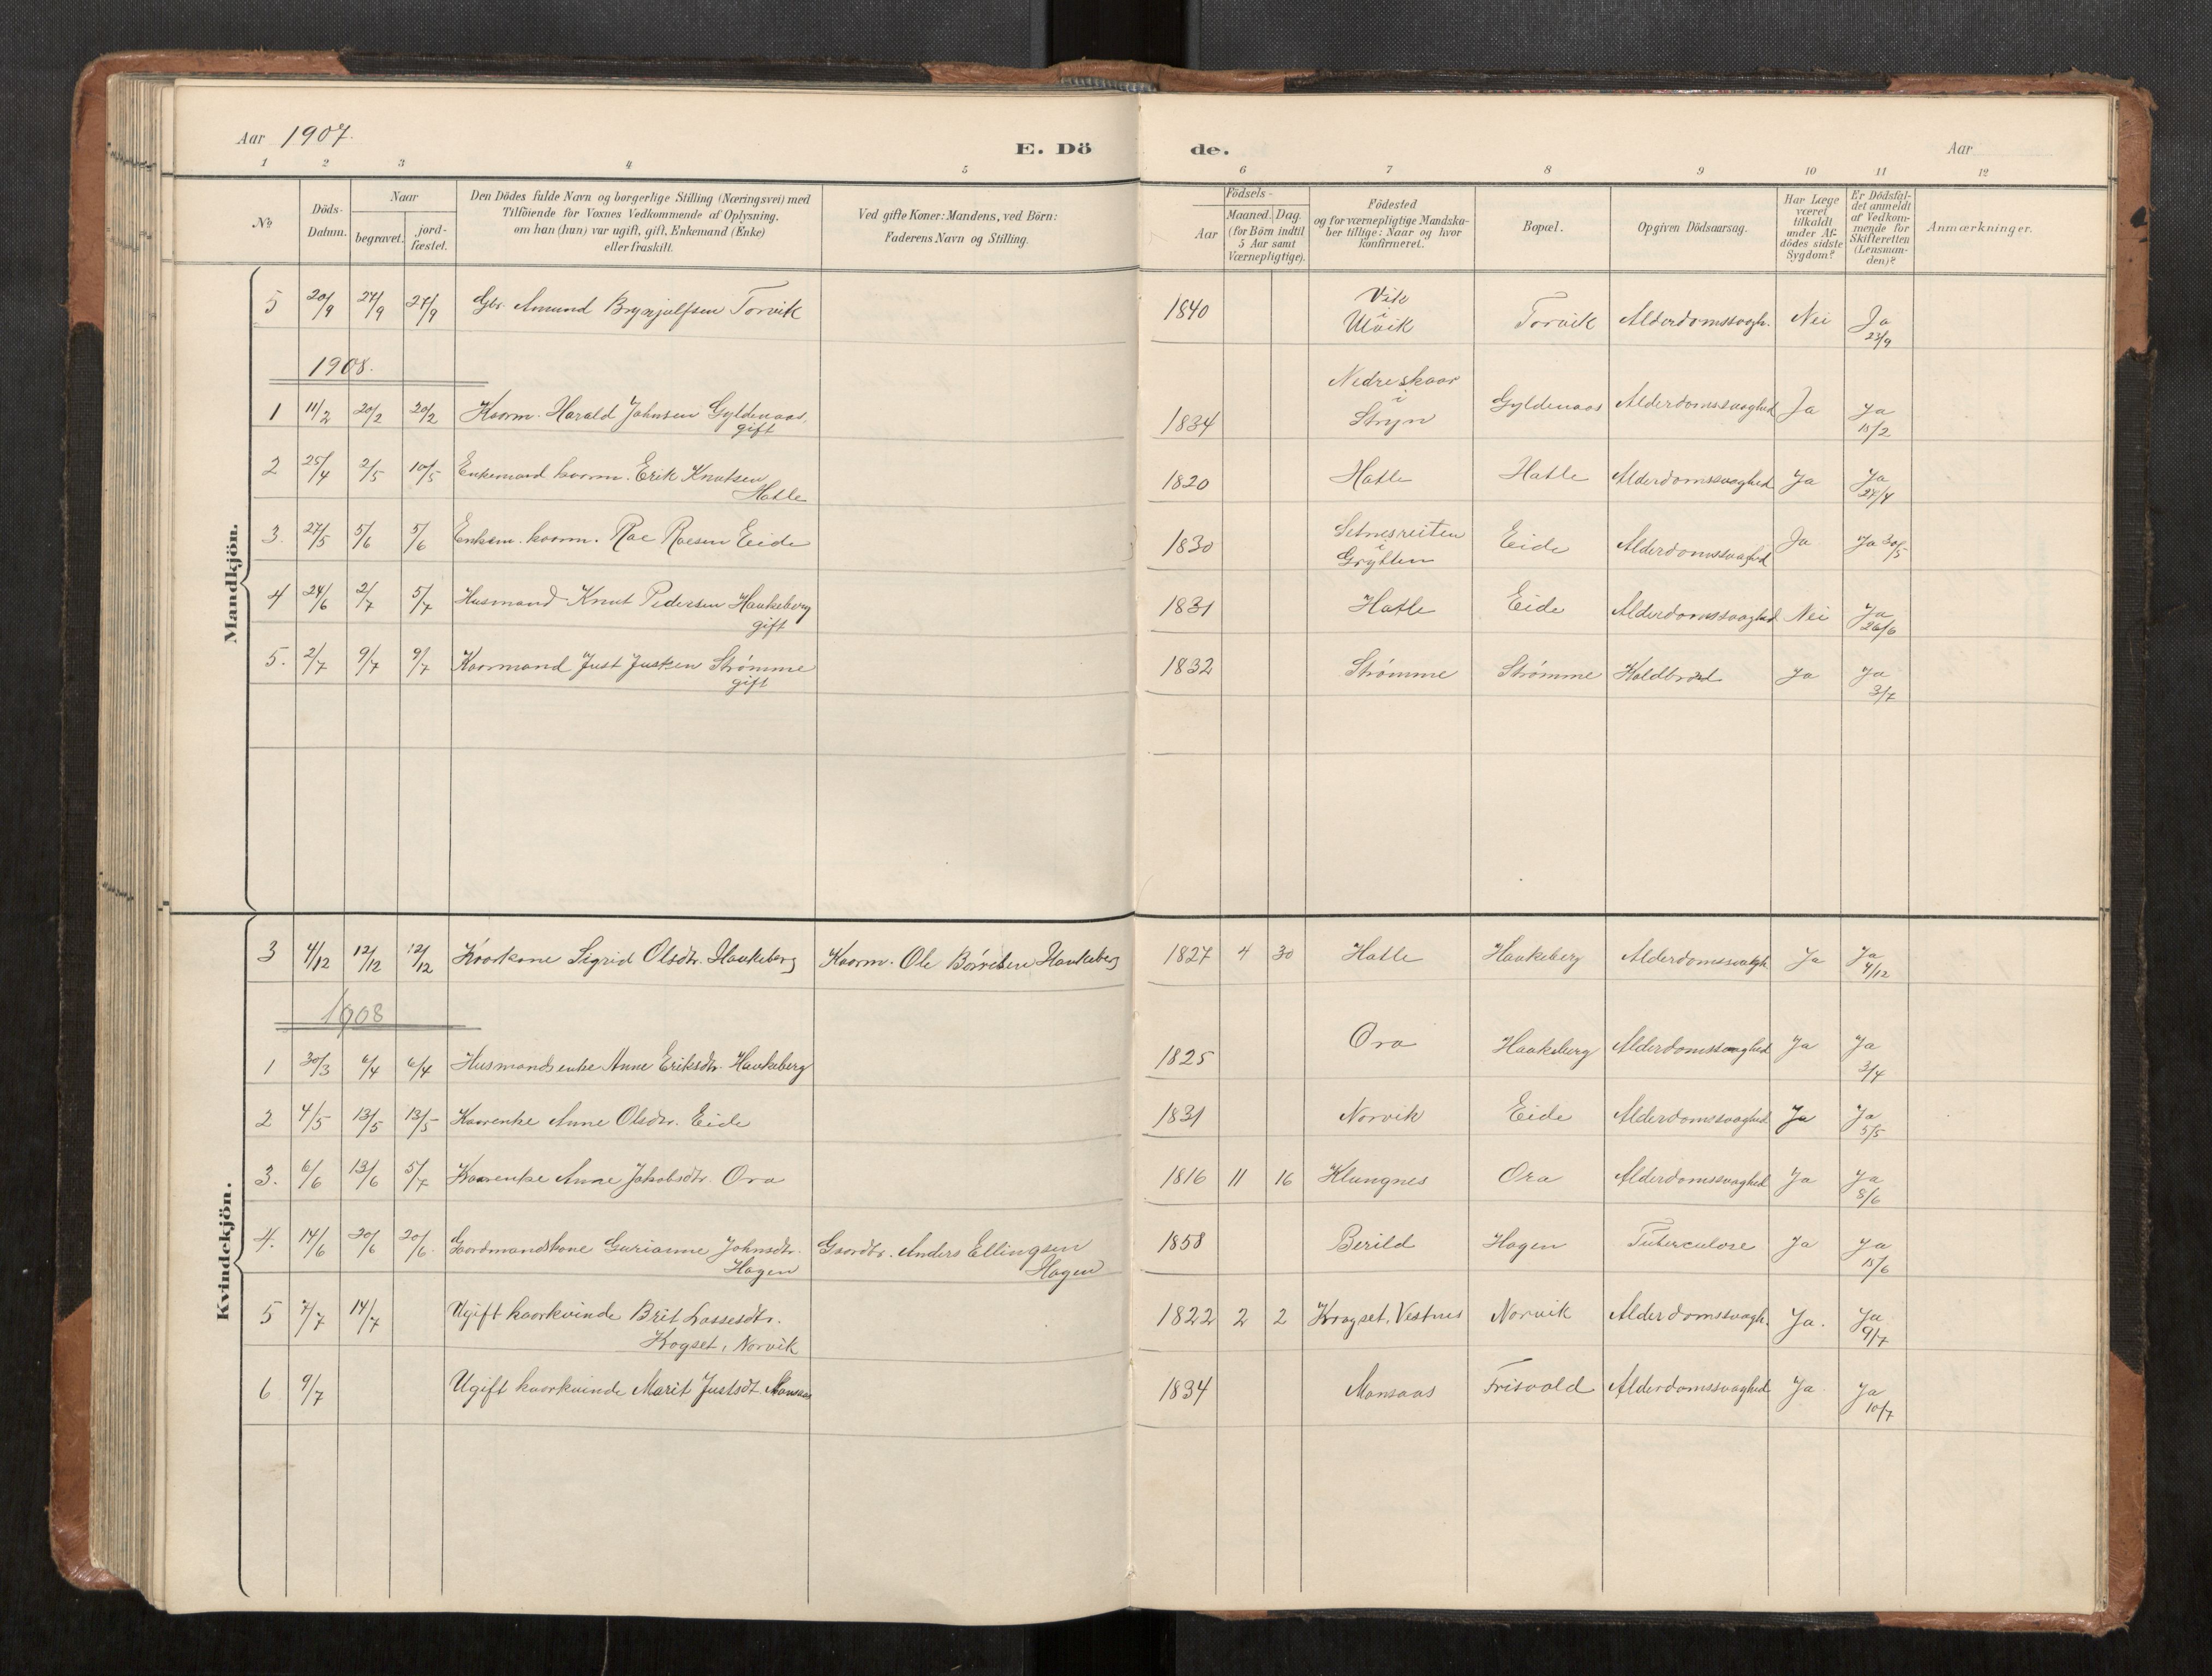 Aar 1907.
E. Dö
de.
Aar
1 2 3 4 5 6 7 8 9 10 11 12
№
Döds-Datum.
Naar
begravet.
jord-fæstet.
Den Dödes fulde Navn og borgerlige Stilling (Næringsvei) med
Tilföiende for Voxnes Vedkommende af Oplysning,
om han (hun) var ugift, gift, Enkemand (Enke)
eller fraskilt.
Ved gifte Koner: Mandens, ved Börn:
Faderens Navn og Stilling.
Födsels-
Aar
Maaned. Dag.
(for Börn indtil
5 Aar samt
Værnepligtige).
Födested
og for værnepligtige Mandska-
ber tillige: Naar og hvor
konfirmeret.
Bopæl.
Opgiven Dödsaarsag.
Har Læge
været
tilkaldt
under Af-
dödes sidste
Sygdom?
Er Dödsfal-
det anmeldt
af Vedkom-
mende for
Skifteretten
(Lensman-
den)?
Anmærkninger.
Mandkjön.
5 20/9 27/9 27/9 Gbr. Amund Brynjulfsen Torvik 1840 Vik i Ulvik Torvik Alderdomssvagh. Nei Ja 23/9
1908.
1 11/2 20/2 20/2 Kaarm. Harald Johnsen Gyldenaas, gift 1834 Nedreskaar i Stryn Gyldenaas Alderdomssvaghed Ja Ja 15/2
2 25/4 2/5 10/5 Enkemand kaarm. Erik Knutsen Hatle 1820 Hatle Hatle Alderdomssvaghed Ja Ja 27/4
3. 27/5 5/6 5/6 Enkem. kaarm. Roe Roesen Eide 1830 Setnesreiten i Grytten Eide Alderdomssvaghed Ja Ja 30/5
4 24/6 2/7 5/7 Husmand Knut Pedersen Haukeberg gift 1831 Hatle Eide Alderdomssvaghed Nei Ja 26/6
5. 2/7 9/7 9/7 Kaarmand Just Justsen Strømme gift 1832 Strømme Strømme Koldbrand Ja Ja 3/7
Kvindekjön.
3 4/12 12/12 12/12 Kaarkone Sigrid Olsdtr. Haukeberg Kaarm. Ole Børresen Haukeberg 1827 4 30 Hatle Haukeberg Alderdomssvagh. Ja Ja 4/12
1908
1 30/3 6/4 6/4 Husmandsenke Anne Eriksdtr. Haukeberg 1825 Ora Haukeberg Alderdomssvaghed Ja Ja 3/4
2 4/5 13/5 13/5 Kaarenke Anne Olsdtr. Eide 1831 Norvik Eide Alderdomssvaghed Ja Ja 5/5
3. 6/6 13/6 5/7 Kaarenke Anne Jakobsdtr. Ora 1816 11 16 Klungnes Ora Alderdomssvaghed Ja Ja 8/6
4. 14/6 20/6 20/6 Gaardmandskone Gurianne Johnsdtr. Hagen Gaardbr. Anders Ellingsen Hagen 1858 Berild Hagen Tuberculose Ja Ja 15/6
5 7/7 14/7 Ugift kaarkvinde Brit Lassesdtr. Kogset, Norvik 1822 2 2 Krogset, Vestnes Norvik Alderdomssvagh. Ja. Ja 9/7
6 9/7 Ugift kaarkvinde Marit Justsdt. Mansaas 1834 Mansaas Frisvold Alderdomssvaghed Ja Ja 10/7